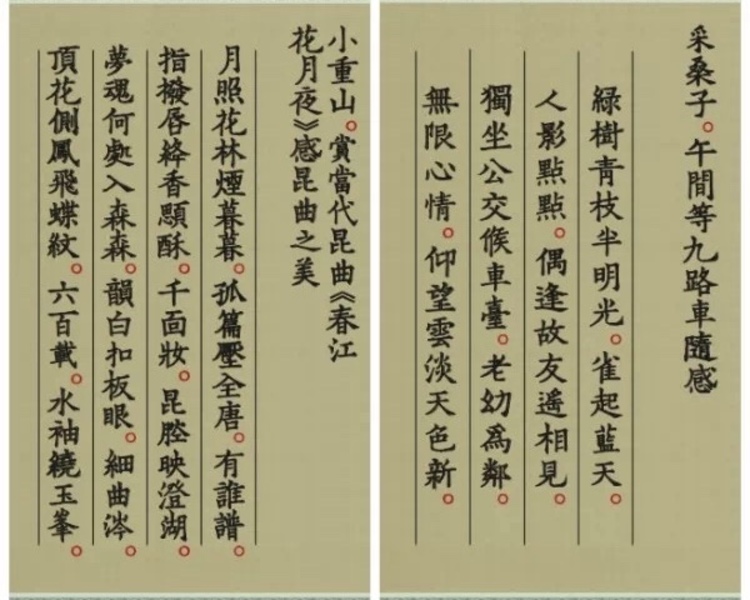 采桑子。午間等九路車隨感
綠樹青枝半明光。雀起藍天。
人影點點。偶逢故友遙相見。
獨坐公交候車臺。老幼爲鄰。
無限心情。仰望雲淡天色新。
小重山。賞當代昆曲《春江
花月夜》感昆曲之美
月照花林煙暮暮。孤篇壓全唐。有誰譜。
指撥唇絳香顋酥。千面妝。昆腔映澄湖。
夢魂何處入森森。韻白扣板眼。細曲涔。
頂花側鳳飛蝶紋。六百載。水袖繞玉峯。